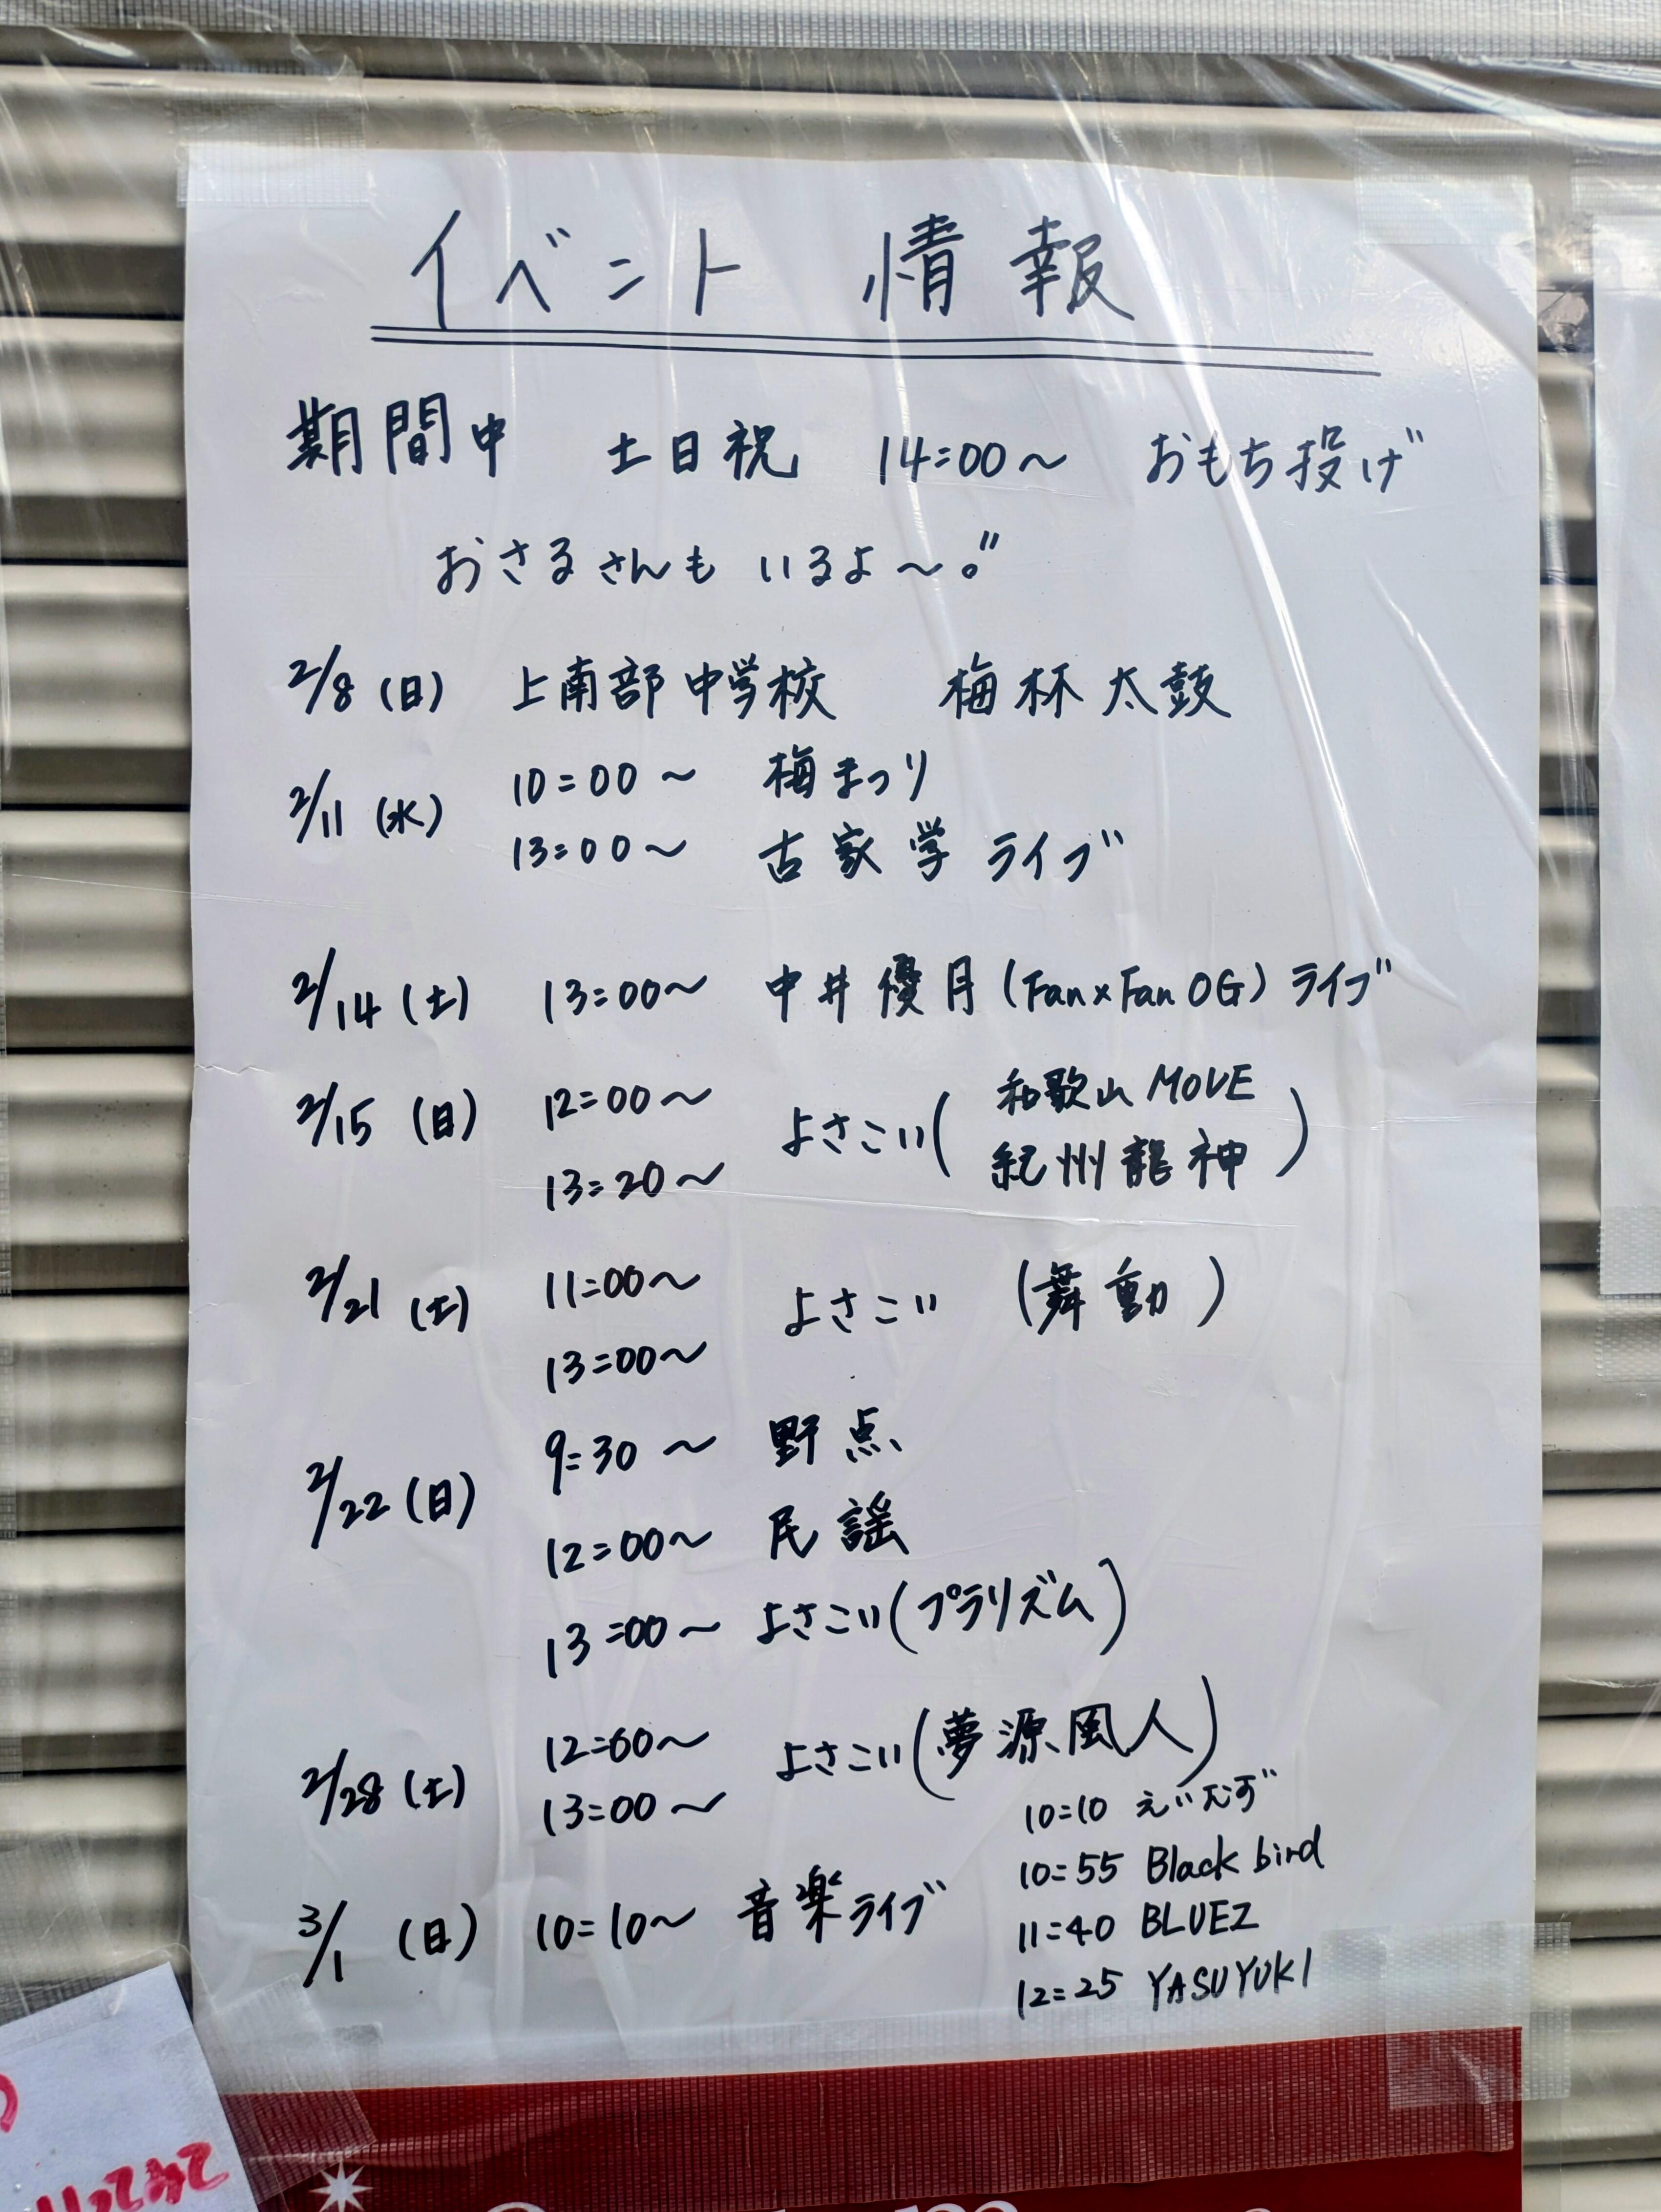 イベント 情報
期間中 土日祝 14:00〜 おもち投げ
おさるさんも いるよ〜。"
2/8 (日) 上南部中学校 梅林太鼓
2/11 (水) 10:00〜 梅まつり
13:00〜 古家学 ライブ
2/14 (土) 13:00〜 中井優月 (Fan×Fan OG) ライブ
2/15 (日) 12:00〜 13:20〜 よさこい (和歌山 MOVE 紀州龍神)
2/21 (土) 11:00〜 13:00〜 よさこい (舞動)
2/22 (日) 9:30〜 野点
12:00〜 民謡
13:00〜 よさこい (プラリズム)
2/28 (土) 12:00〜 13:00〜 よさこい (夢源風人)
3/1 (日) 10:10〜 音楽ライブ
10:10
10:55 Black bird
11:40 BLUEZ
12:25 YASUYUKI